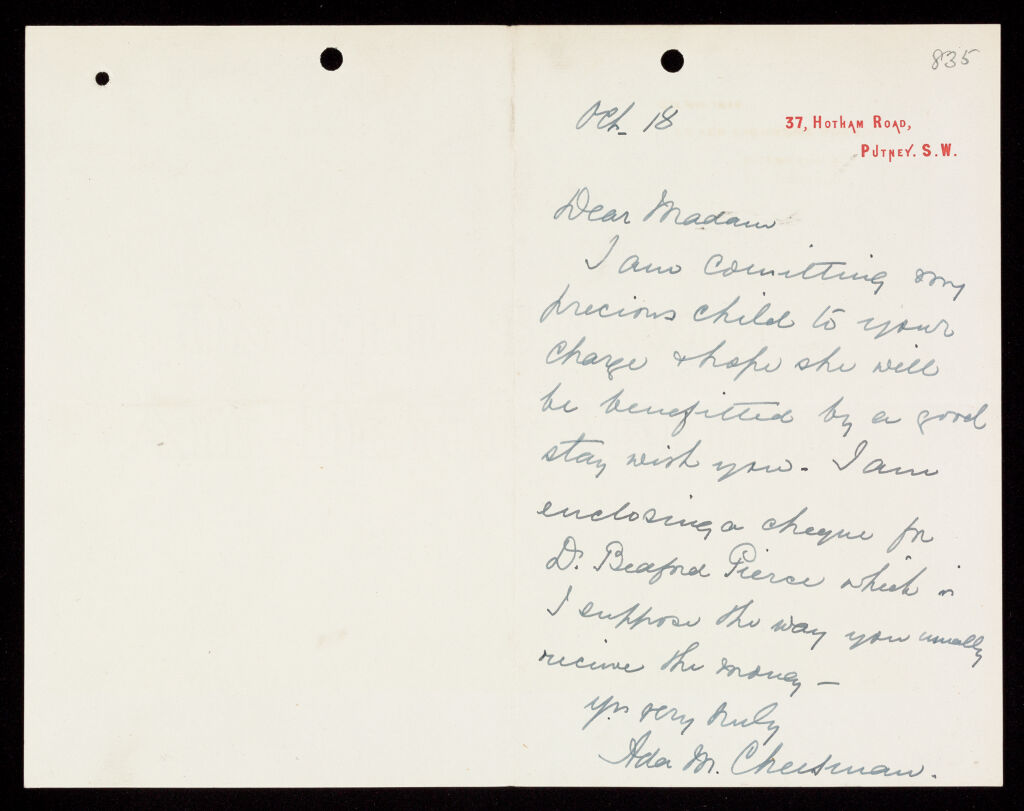 835
Oct. 18
37, Hotham Road,
Putney. S.W.
Dear Madam
I am comitting my
precious child to your
charge & hope she will
be benefitted by a good
stay with you. I am
enclosing a cheque for
Dr. Bedford Pierce which is
I suppose the way you usually
recieve the money —
Yrs very truly
Ada M. Cheesman.